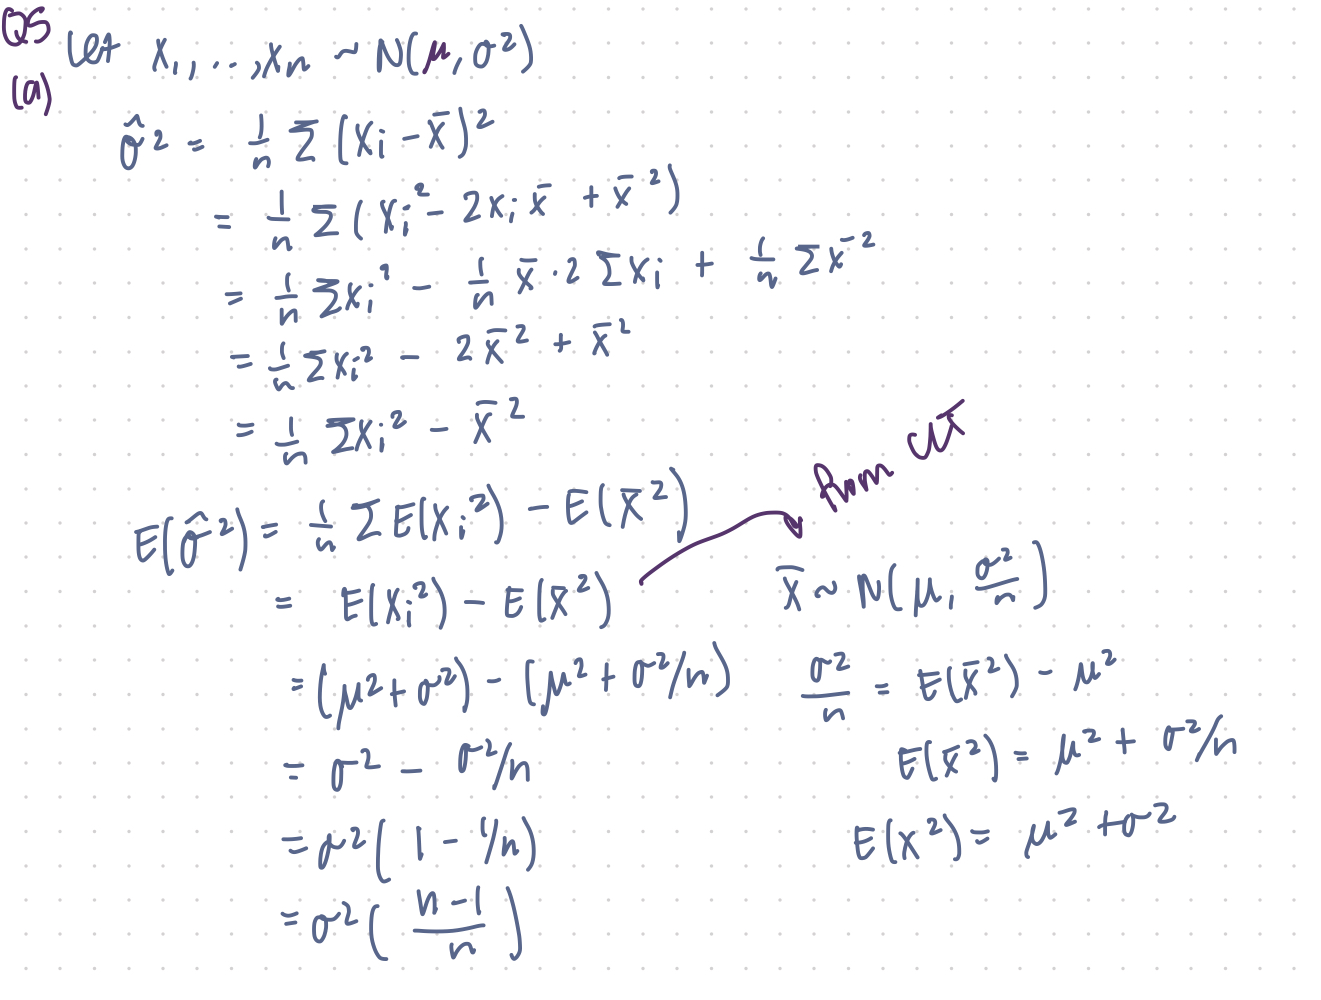 Q5
(a)
Let X₁, ..., Xn ~ N(μ, σ²)
σ̂² = 1/n Σ (Xi - X̄)²
= 1/n Σ (Xi² - 2Xi X̄ + X̄²)
= 1/n ΣXi² - 1/n X̄ · 2 ΣXi + 1/n Σ X̄²
= 1/n ΣXi² - 2X̄² + X̄²
= 1/n ΣXi² - X̄²
E(σ̂²) = 1/n Σ E(Xi²) - E(X̄²)
= E(Xi²) - E(X̄²)
= (μ² + σ²) - (μ² + σ²/n)
= σ² - σ²/n
= σ² (1 - 1/n)
= σ² ((n-1)/n)
from CLT
X̄ ~ N(μ, σ²/n)
σ²/n = E(X̄²) - μ²
E(X̄²) = μ² + σ²/n
E(X²) = μ² + σ²